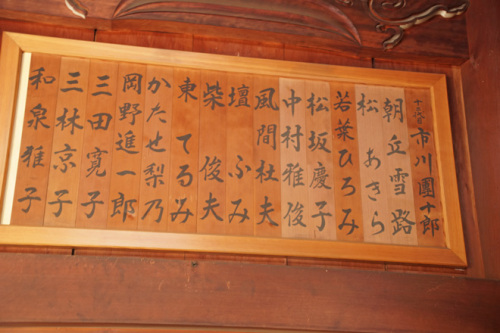 十二代目 市川團十郎
朝丘雪路
松あきら
若葉ひろみ
松坂慶子
中村雅俊
風間杜夫
壇ふみ
柴俊夫
東てるみ
かたせ梨乃
岡野進一郎
三田寛子
三林京子
和泉雅子